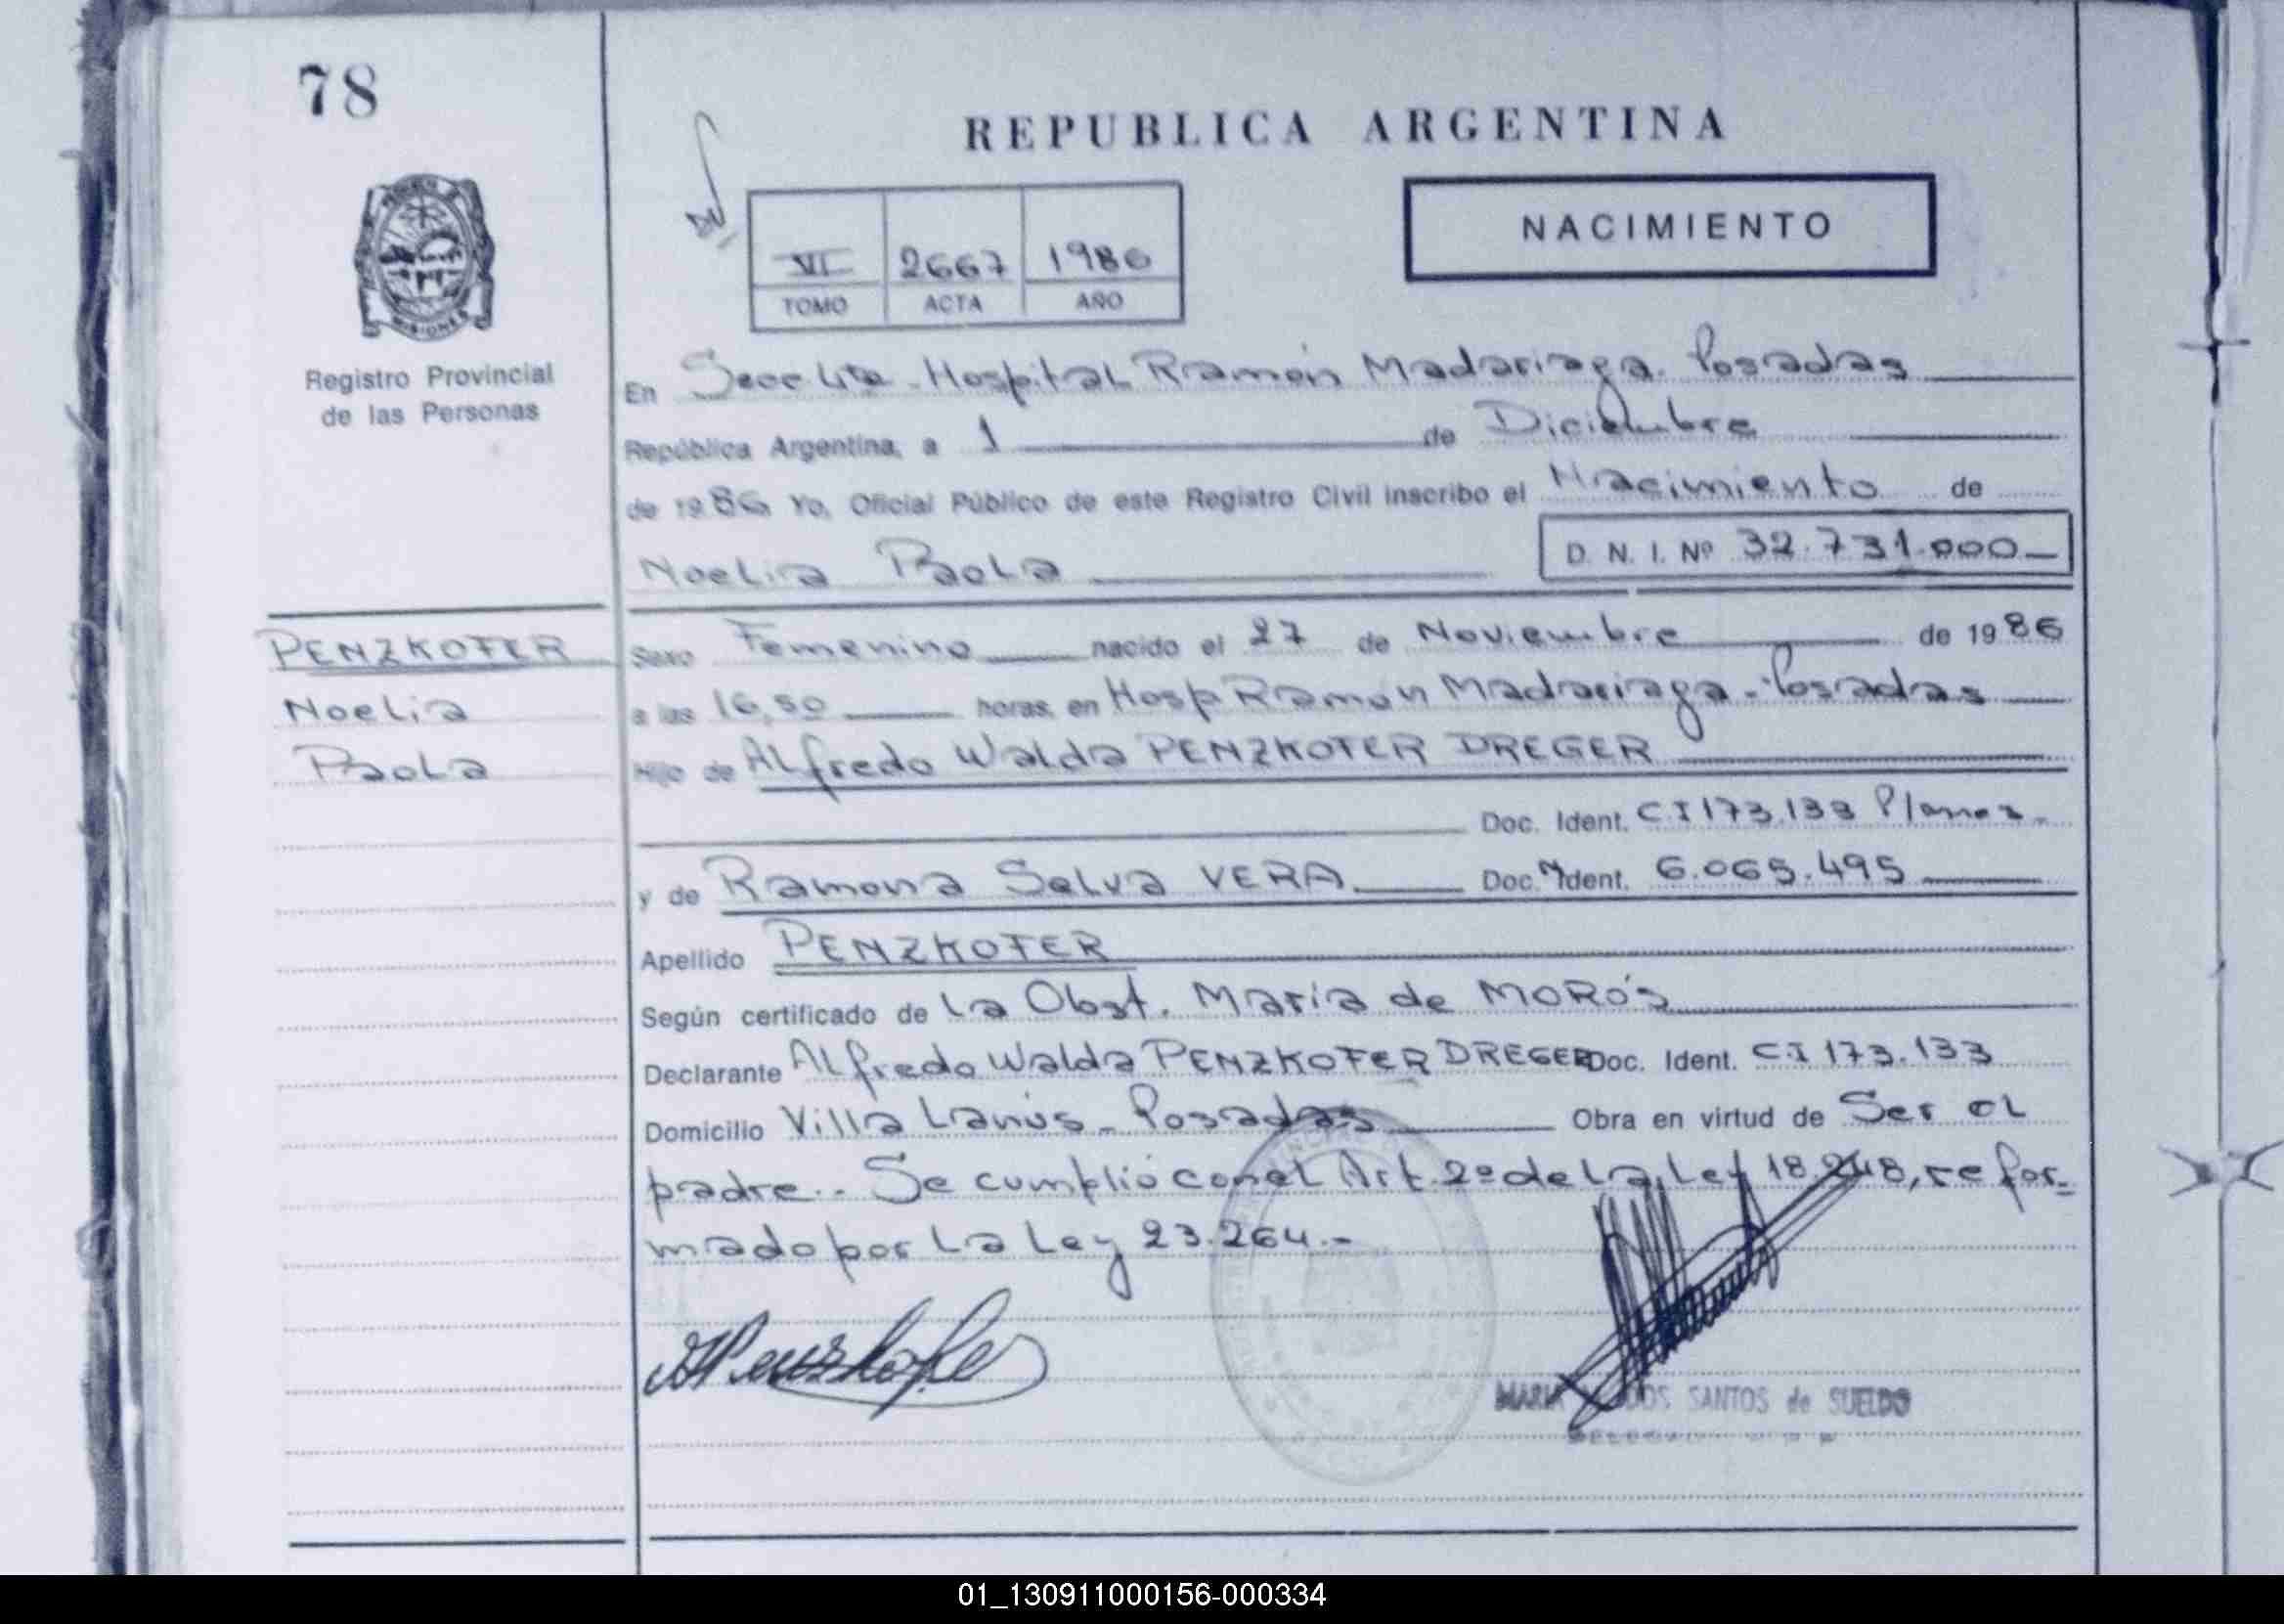 78
REPUBLICA ARGENTINA
NACIMIENTO
VI 2667 1986
TOMO ACTA AÑO
MISIONES
Registro Provincial
de las Personas
En Secc 4ta - Hospital Ramón Madariaga. Posadas
República Argentina, a 1 de Diciembre
de 1986 Yo, Oficial Público de este Registro Civil inscribo el Nacimiento de
Noelia Paola
D. N. I. Nº 32.731.000
PENZKOFER
Noelia
Paola
Sexo Femenino nacido el 27 de Noviembre de 1986
a las 16,50 horas, en Hosp Ramón Madariaga - Posadas
Hijo de Alfredo Walda PENZKOFER DREGER
Doc. Ident. C.I 173.133
y de Ramona Selva VERA Doc. Ident. 6.065.495
Apellido PENZKOFER
Según certificado de la Obst. María de MORÓS
Declarante Alfredo Walda PENZKOFER DREGER Doc. Ident. C.I 173.133
Domicilio Villa Lanús - Posadas Obra en virtud de Ser el
padre.. Se cumplió con el Art. 2º de la Ley 18.248, refor-
mado por la Ley 23.264.-
MARIA DOS SANTOS de SUELDO
01_130911000156-000334